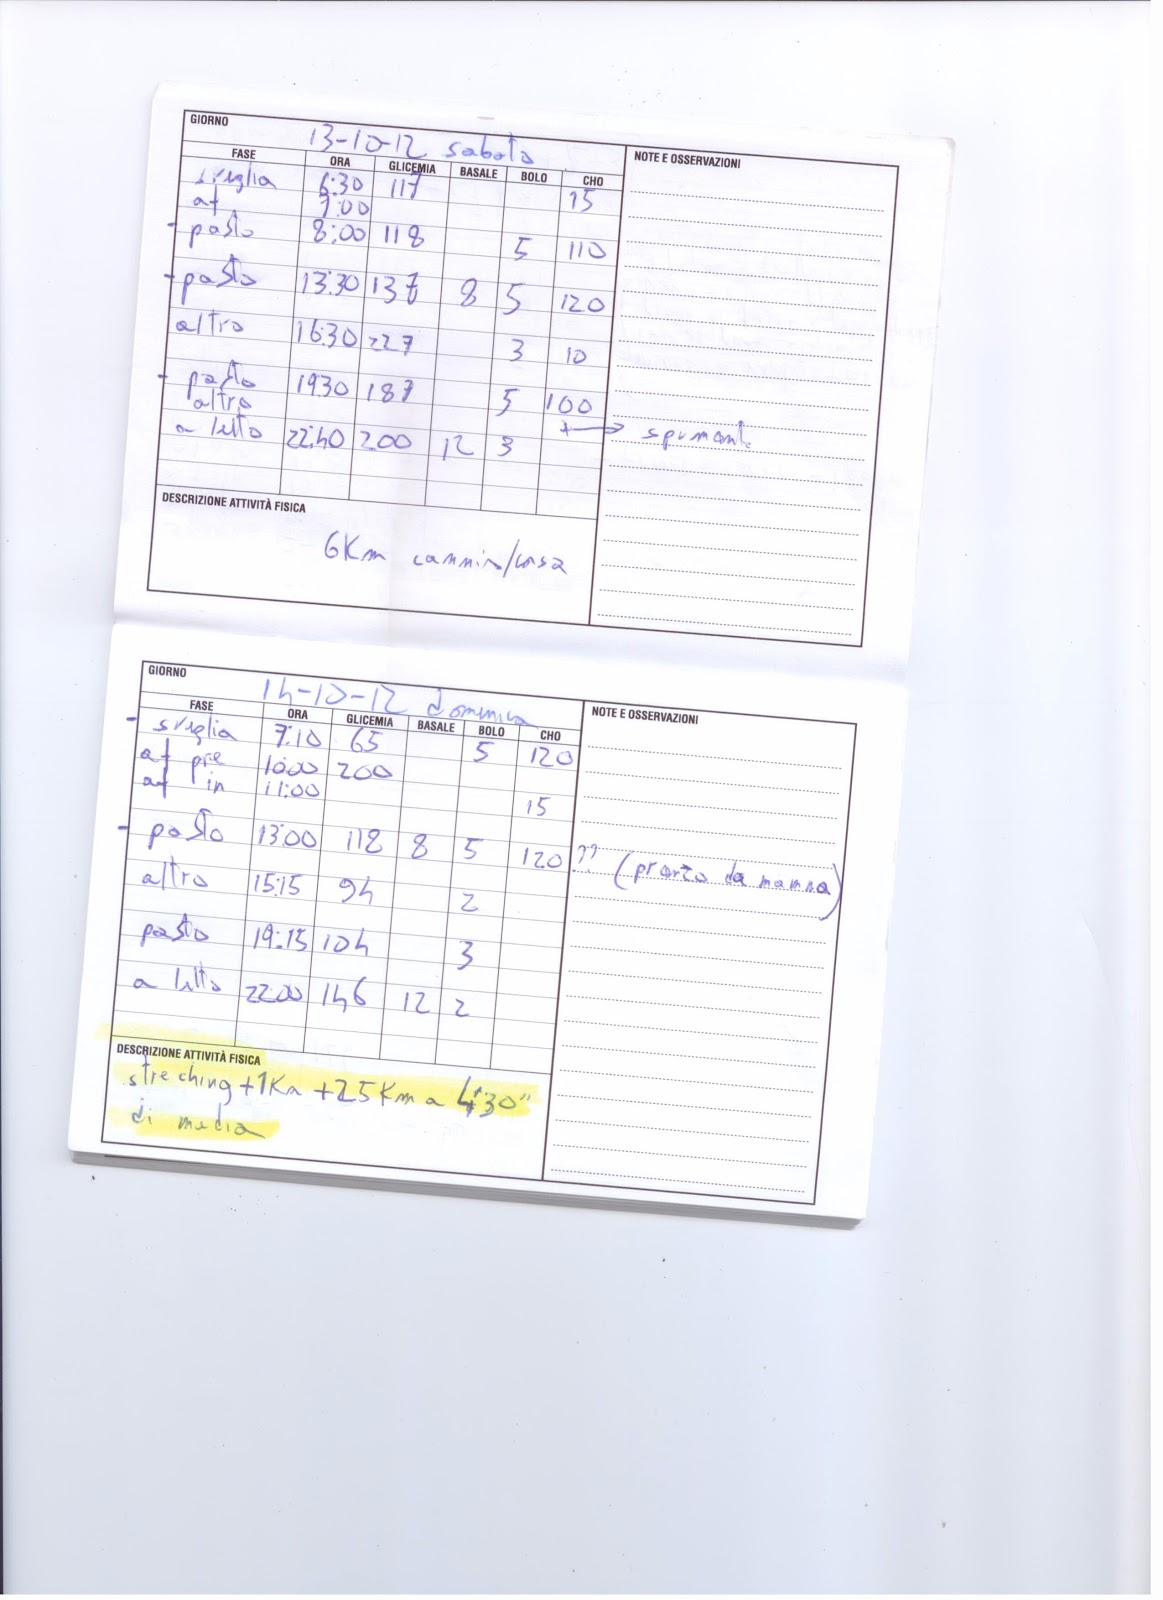 GIORNO
13-10-12 sabato
FASE ORA GLICEMIA BASALE BOLO CHO NOTE E OSSERVAZIONI
sveglia 6:30 117 15
af 7:00
- pasto 8:00 118 5 110
- pasto 13:30 137 8 5 120
altro 16:30 227 3 10
- pasto 1930 187 5 100
altro + → spumante
a letto 22:40 200 12 3
DESCRIZIONE ATTIVITÀ FISICA
6Km cammin/corsa
GIORNO
14-10-12 domenica
FASE ORA GLICEMIA BASALE BOLO CHO NOTE E OSSERVAZIONI
- sveglia 7:10 65 5 120
af pre 10:00 200
af in 11:00 15
- pasto 13:00 118 8 5 120 ?? (pranzo da mamma)
altro 15:15 94 2
pasto 19:15 104 3
a letto 22:00 146 12 2
DESCRIZIONE ATTIVITÀ FISICA
streching +1Km +25Km a 4'30"
di media